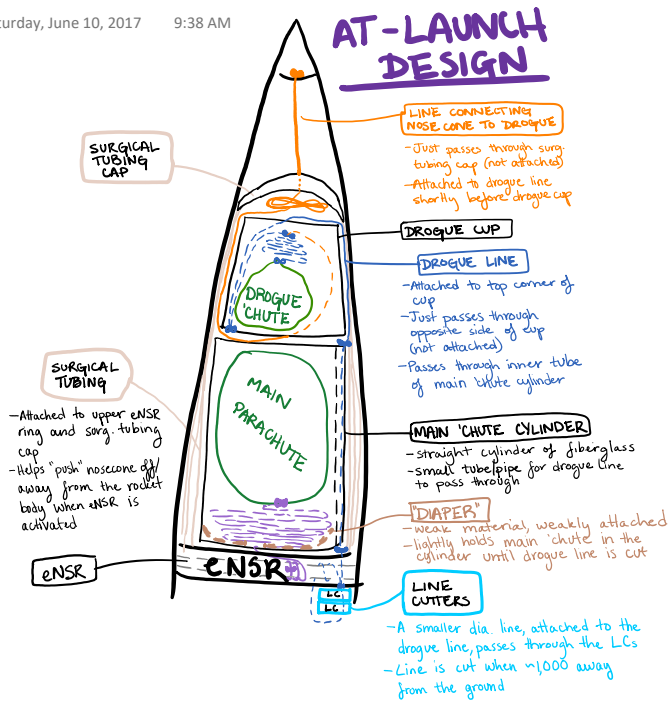 turday, June 10, 2017 9:38 AM
AT-LAUNCH
DESIGN
LINE CONNECTING
NOSE CONE TO DROGUE
-Just passes through surg.
tubing cap (not attached)
-Attached to drogue line
shortly before drogue cup
SURGICAL
TUBING
CAP
DROGUE CUP
DROGUE LINE
-Attached to top corner of
cup
-Just passes through
opposite side of cup
(not attached)
-Passes through inner tube
of main 'chute cylinder
DROGUE
'CHUTE
SURGICAL
TUBING
-Attached to upper eNSR
ring and surg. tubing
cap
-Helps "push" nosecone off/
away from the rocket
body when eNSR is
activated
MAIN
PARACHUTE
MAIN 'CHUTE CYLINDER
-straight cylinder of fiberglass
-small tube/pipe for drogue line
to pass through
"DIAPER"
-weak material, weakly attached
-lightly holds main 'chute in the
cylinder until drogue line is cut
eNSR
eNSR
LC
LC
LINE
CUTTERS
-A smaller dia. line, attached to the
drogue line, passes through the LCs
-Line is cut when ~1,000 away
from the ground